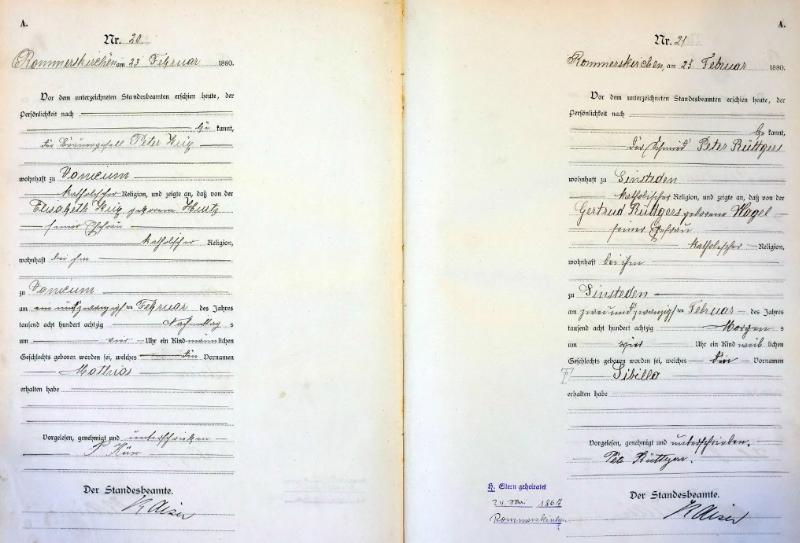 A.
Nr. 20
Rommerskirchen am 23 Februar 1880.
Vor dem unterzeichneten Standesbeamten erschien heute, der
Persönlichkeit nach
be kannt,
Peter
wohnhaft zu
katholischer Religion, und zeigte an, daß von der
Elisabeth geborene
seiner Ehefrau
katholischer Religion,
wohnhaft bei ihm
zu
am ein und zwanzigsten Februar des Jahres
tausend acht hundert achtzig Nachmittags
um Uhr ein Kind männlichen
Geschlechts geboren worden sei, welches den Vornamen
Mathias
erhalten habe
Vorgelesen, genehmigt und unterschrieben
P.
Der Standesbeamte.
A.
Nr. 21
Rommerskirchen, am 23 Februar 1880.
Vor dem unterzeichneten Standesbeamten erschien heute, der
Persönlichkeit nach
be kannt,
der Schmied Peter Rüttgers
wohnhaft zu Sinsteden
katholischer Religion, und zeigte an, daß von der
Gertrud Rüttgers geborene Vogel
seiner Ehefrau
katholischer Religion,
wohnhaft bei ihm
zu Sinsteden
am zwei und zwanzigsten Februar des Jahres
tausend acht hundert achtzig Morgens
um Uhr ein Kind weiblichen
Geschlechts geboren worden sei, welches den Vornamen
Sibilla
erhalten habe
Vorgelesen, genehmigt und unterschrieben.
Pet. Rüttgers.
Der Standesbeamte.
H. Eltern geheiratet
Rommerskirchen